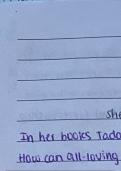 She
In her books Tado
How can all-loving